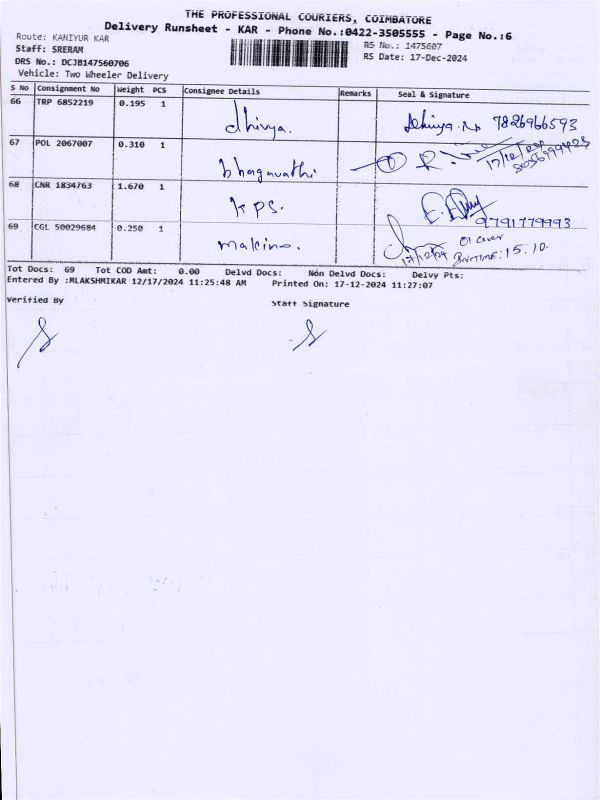 THE PROFESSIONAL COURIERS, COIMBATORE
Delivery Runsheet - KAR - Phone No.:0422-3505555 - Page No.:6
Route: KANIYUR KAR
Staff: SRERAM
DRS No.: DCJB147560706
Vehicle: Two Wheeler Delivery
RS No.: 1475607
RS Date: 17-Dec-2024
S No Consignment No Weight PCS Consignee Details Remarks Seal & Signature
66 TRP 6852219 0.195 1 dhivya. 7826966593
67 POL 2067007 0.310 1 bhagavathi
68 CNR 1834763 1.670 1 KPS. 9791779993
69 CGL 50029684 0.250 1 makino. 01 Cover
17/12/24 15:10
Tot Docs: 69 Tot COD Amt: 0.00 Delvd Docs: Non Delvd Docs: Delvy Pts:
Entered By :MLAKSHMIKAR 12/17/2024 11:25:48 AM Printed On: 17-12-2024 11:27:07
Verified By Staff Signature